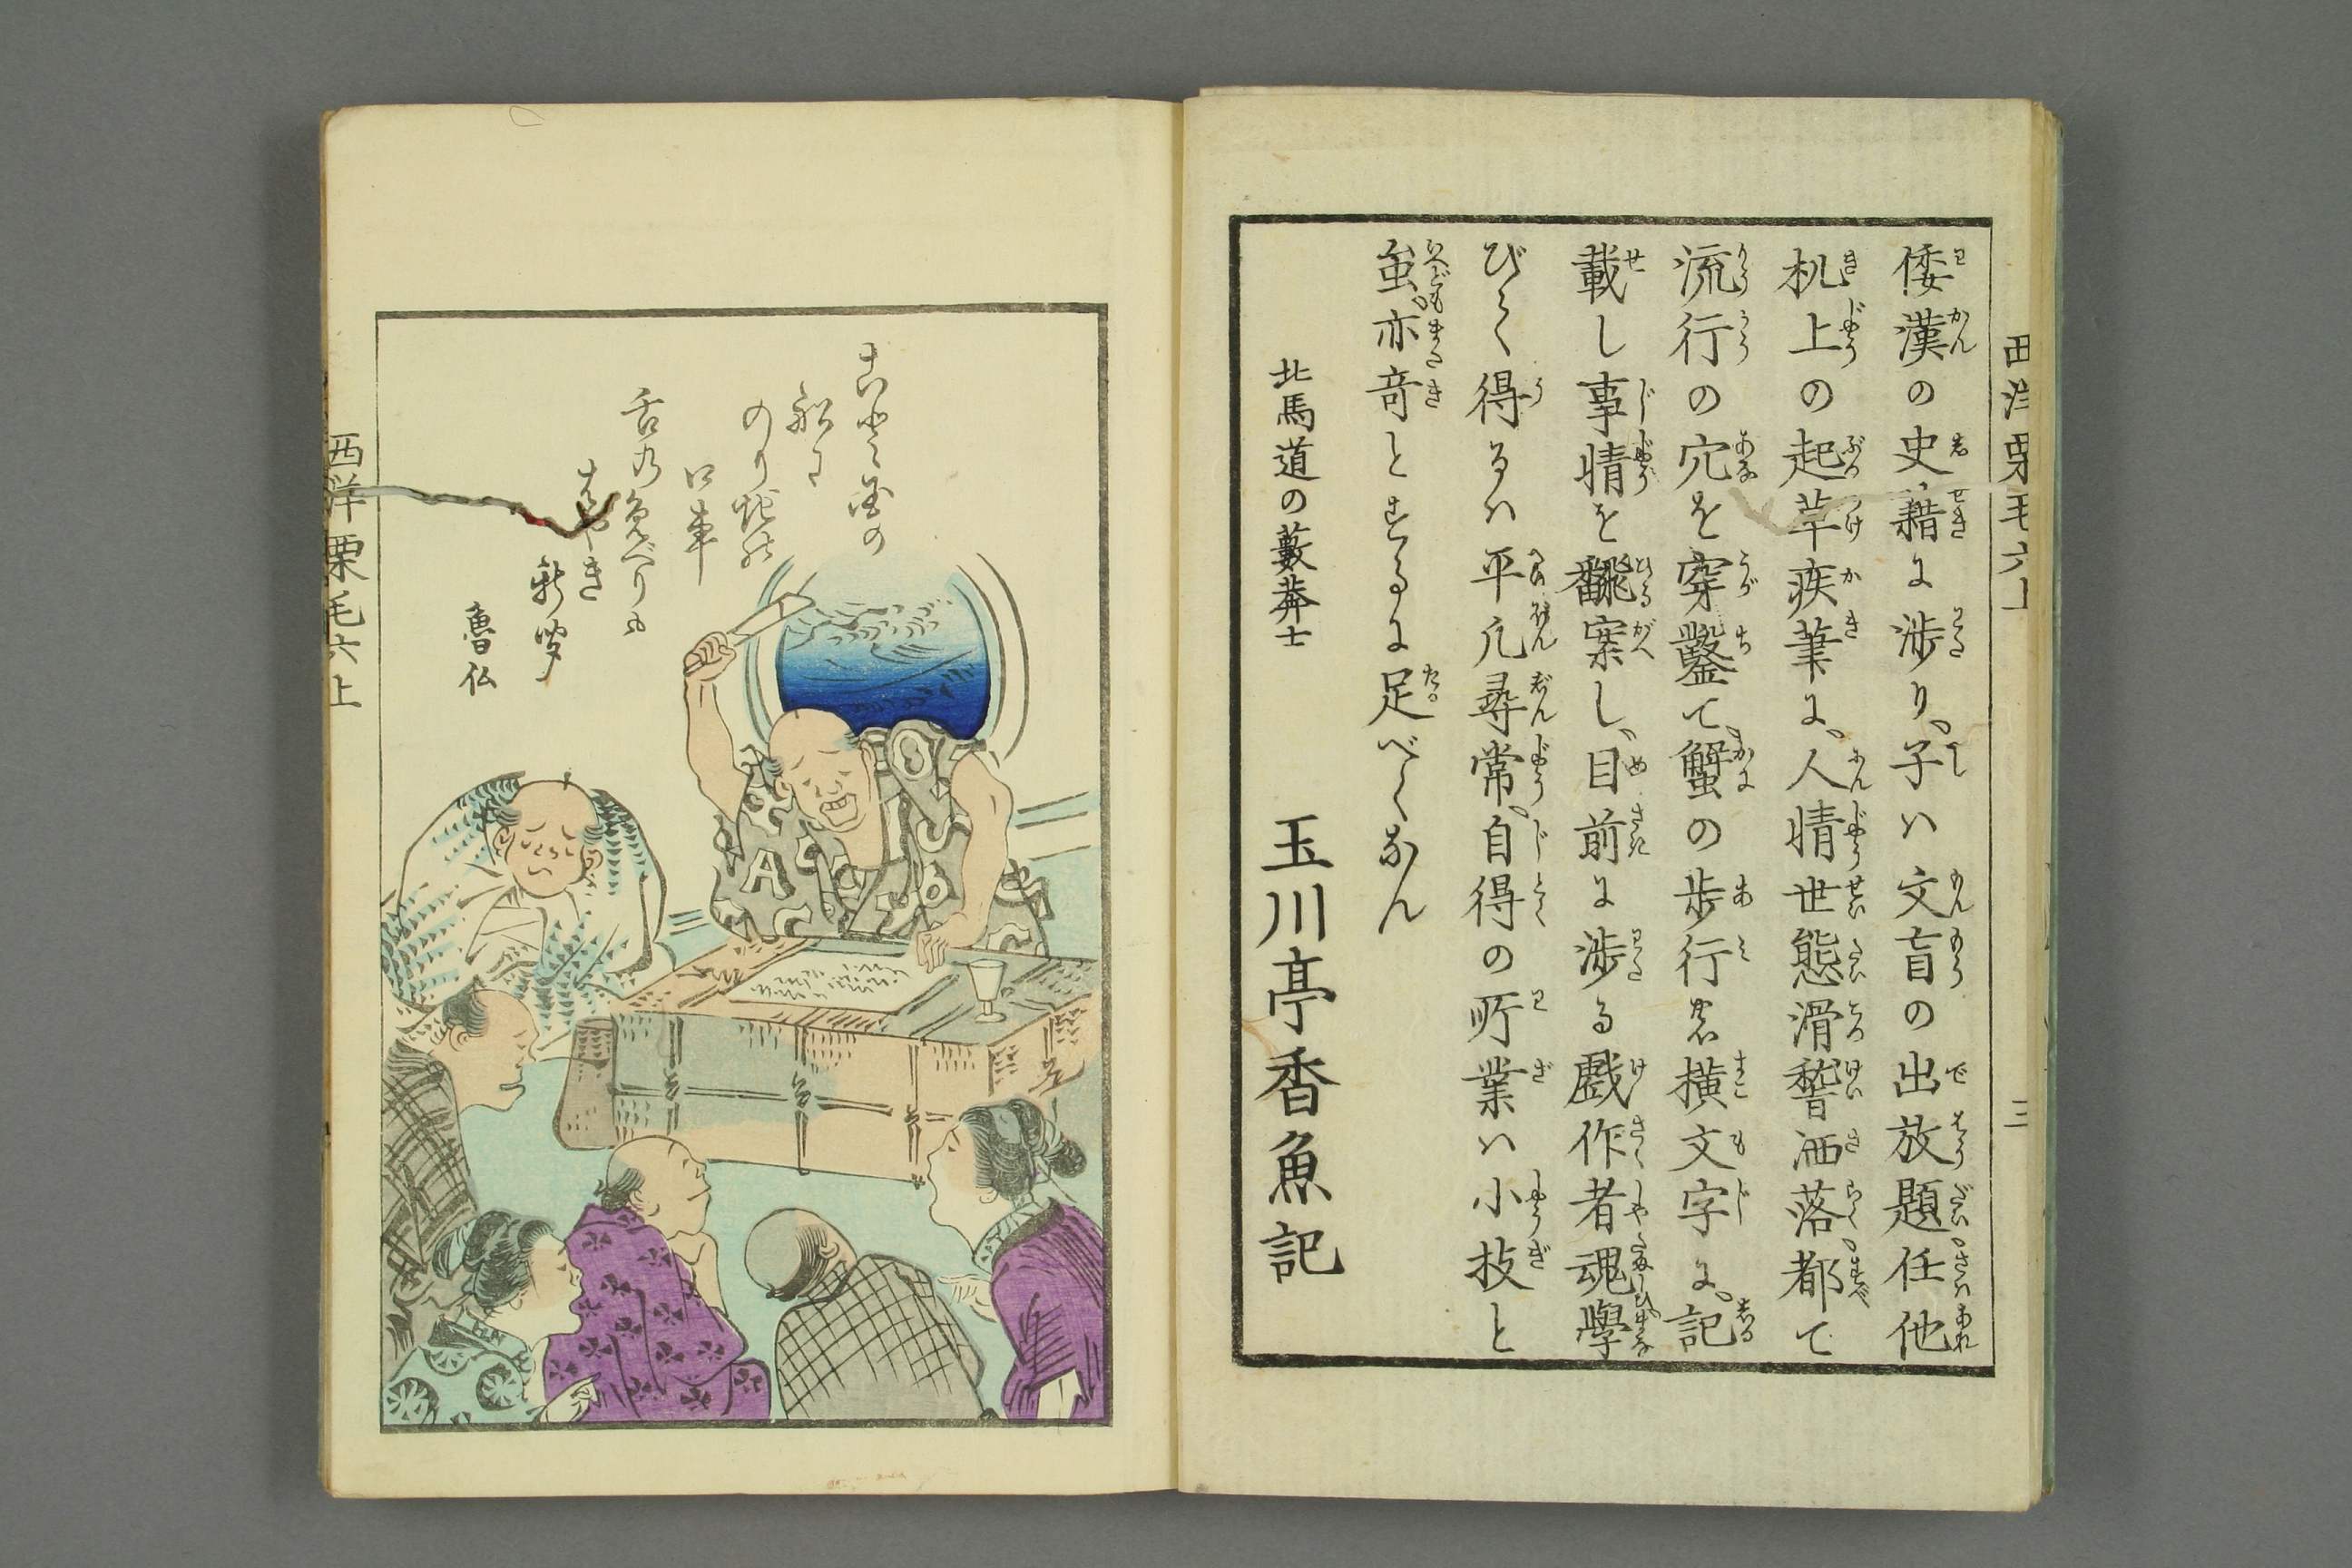 倭漢の史籍に渉り、子ハ文盲の出放題、任他
机上の起草疾筆に、人情世態滑稽洒落、都て
流行の穴を穿鑿て、蟹の歩行た横文字に、記
載し事情を翻案し、目前に渉る戯作者魂、學
びて得るハ平凡尋常、自得の所業ハ小技と
雖、亦奇とするに足べくなん
北馬道の藪莽士
玉川亭香魚記
西洋栗毛六上
三
のり地の
口車
舌の
魯仏
西洋栗毛六上